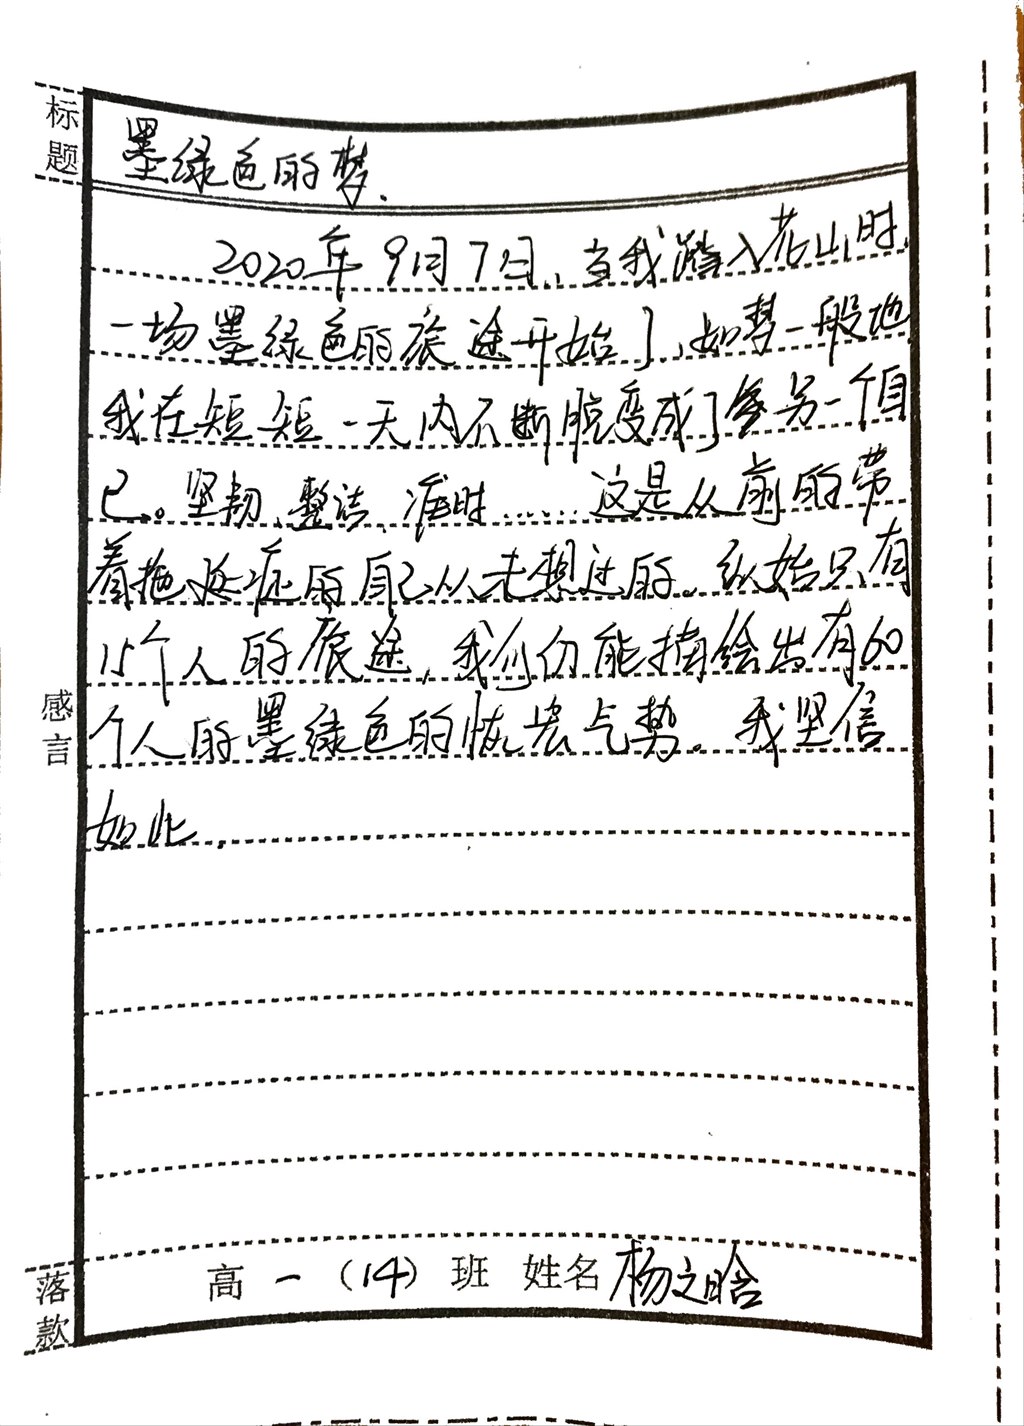 标题
墨绿色的梦.
2020年9月7日,当我踏入花山时,
一场墨绿色的旅途开始了,如梦一般地
我在短短一天内不断脱变成了另一个自
己。坚韧、整洁、准时……这是从前的带
着拖延症的自己从未想过的。纵始只有
15个人的旅途,我们仍能描绘出有60
个人的墨绿色的恢宏气势。我坚信
如此.
感言
落款
高一(14)班 姓名 杨文晗